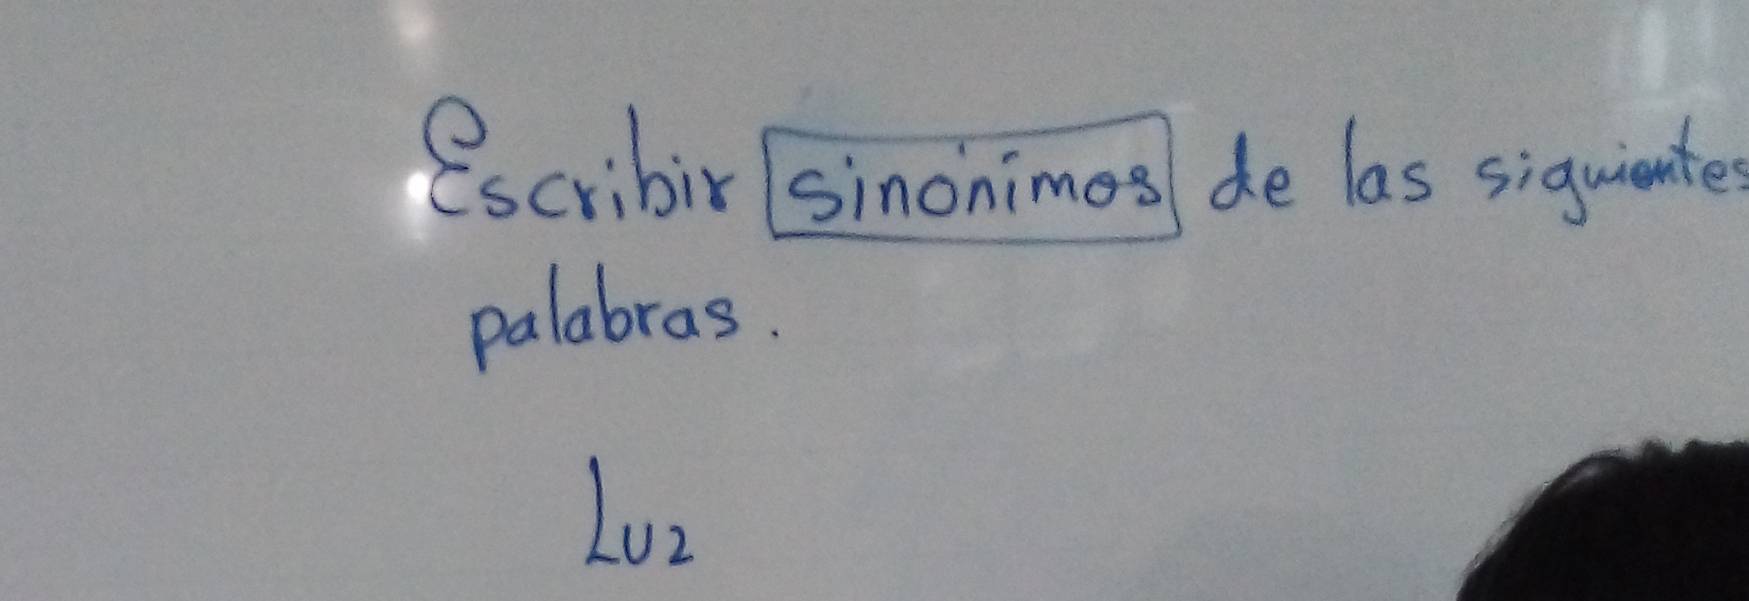 Escribir sinónimos de las siguientes
palabras.
Luz